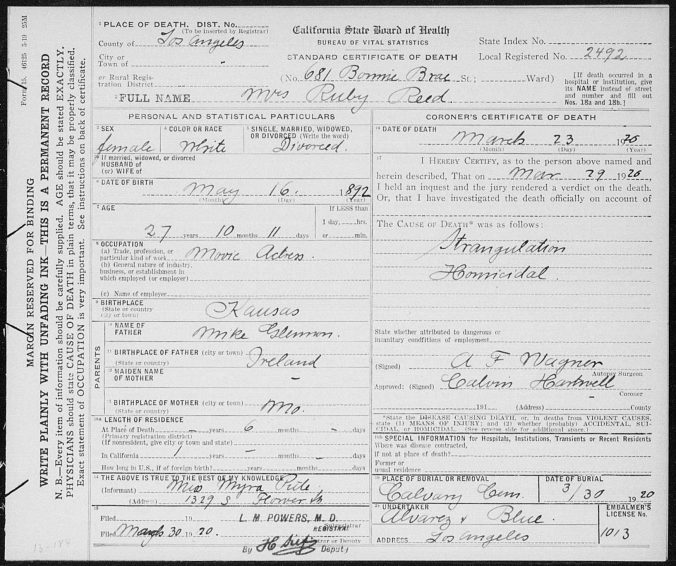 Form 15. 46125 5-19 25M
MARGIN RESERVED FOR BINDING
WRITE PLAINLY WITH UNFADING INK—THIS IS A PERMANENT RECORD
N. B.—Every item of information should be carefully supplied. AGE should be stated EXACTLY.
PHYSICIANS should state CAUSE OF DEATH in plain terms, that it may be properly classified.
Exact statement of OCCUPATION is very important. See instructions on back of certificate.
PLACE OF DEATH. DIST. No.
(To be inserted by Registrar)
County of Los Angeles
City or
Town of
or Rural Regis-
tration District
California State Board of Health
BUREAU OF VITAL STATISTICS
STANDARD CERTIFICATE OF DEATH
State Index No.
Local Registered No. 2492
(No. 681 Bonnie Brae St.; Ward)
[If death occurred in a
hospital or institution, give
its NAME instead of street
and number and fill out
Nos. 18a and 18b.]
FULL NAME Mrs Ruby Reed
PERSONAL AND STATISTICAL PARTICULARS
SEX
female
COLOR OR RACE
White
SINGLE, MARRIED, WIDOWED,
OR DIVORCED (Write the word)
Divorced
If married, widowed, or divorced
HUSBAND of
(or) WIFE of
DATE OF BIRTH
May 16 1892
(Month) (Day) (Year)
AGE
27 years 10 months 11 days
If LESS than
1 day, hrs.
or min.
OCCUPATION
(a) Trade, profession, or
particular kind of work Movie Actress
(b) General nature of industry,
business, or establishment in
which employed (or employer)
(c) Name of employer
BIRTHPLACE
(State or country)
(City or town)
Kansas
PARENTS
NAME OF
FATHER
Mike Glennon
BIRTHPLACE OF FATHER (city or town)
(State or country)
Ireland
MAIDEN NAME
OF MOTHER
-
BIRTHPLACE OF MOTHER (city or town)
(State or country)
Mo.
LENGTH OF RESIDENCE
At Place of Death - years 6 months - days
(Primary registration district)
(If nonresident, give city or town and state)
In California 1 years - months - days
How long in U. S., if of foreign birth? years months days
THE ABOVE IS TRUE TO THE BEST OF MY KNOWLEDGE
(Informant) Miss Myra Pride
(Address) 1329 S Flower St
Filed 19
Filed March 30 1920.
L. M. POWERS, M. D.
REGISTRAR
By Deputy
CORONER'S CERTIFICATE OF DEATH
DATE OF DEATH
March 23 1920
(Month) (Day) (Year)
I HEREBY CERTIFY, as to the person above named and
herein described, That on Mar. 29 1920,
I held an inquest and the jury rendered a verdict on the death.
Or, that I have investigated the death officially on account of
The CAUSE OF DEATH* was as follows:
Strangulation
Homicidal.
State whether attributed to dangerous or
insanitary conditions of employment
(Signed) A F Wagner
Autopsy Surgeon
Approved: (Signed) Calvin Hartwell
Coroner
191 (Address) County
*State the DISEASE CAUSING DEATH, or, in deaths from VIOLENT CAUSES,
state (1) MEANS OF INJURY; and (2) whether (probably) ACCIDENTAL, SUI-
CIDAL, or HOMICIDAL. (See reverse side for additional space.)
SPECIAL INFORMATION for Hospitals, Institutions, Transients or Recent Residents
Where was disease contracted,
if not at place of death?
Former or
usual residence
PLACE OF BURIAL OR REMOVAL
Calvary Cem.
DATE OF BURIAL
3/30 1920
UNDERTAKER
Alvarez & Blue.
ADDRESS Los Angeles
EMBALMER'S
LICENSE No.
1013